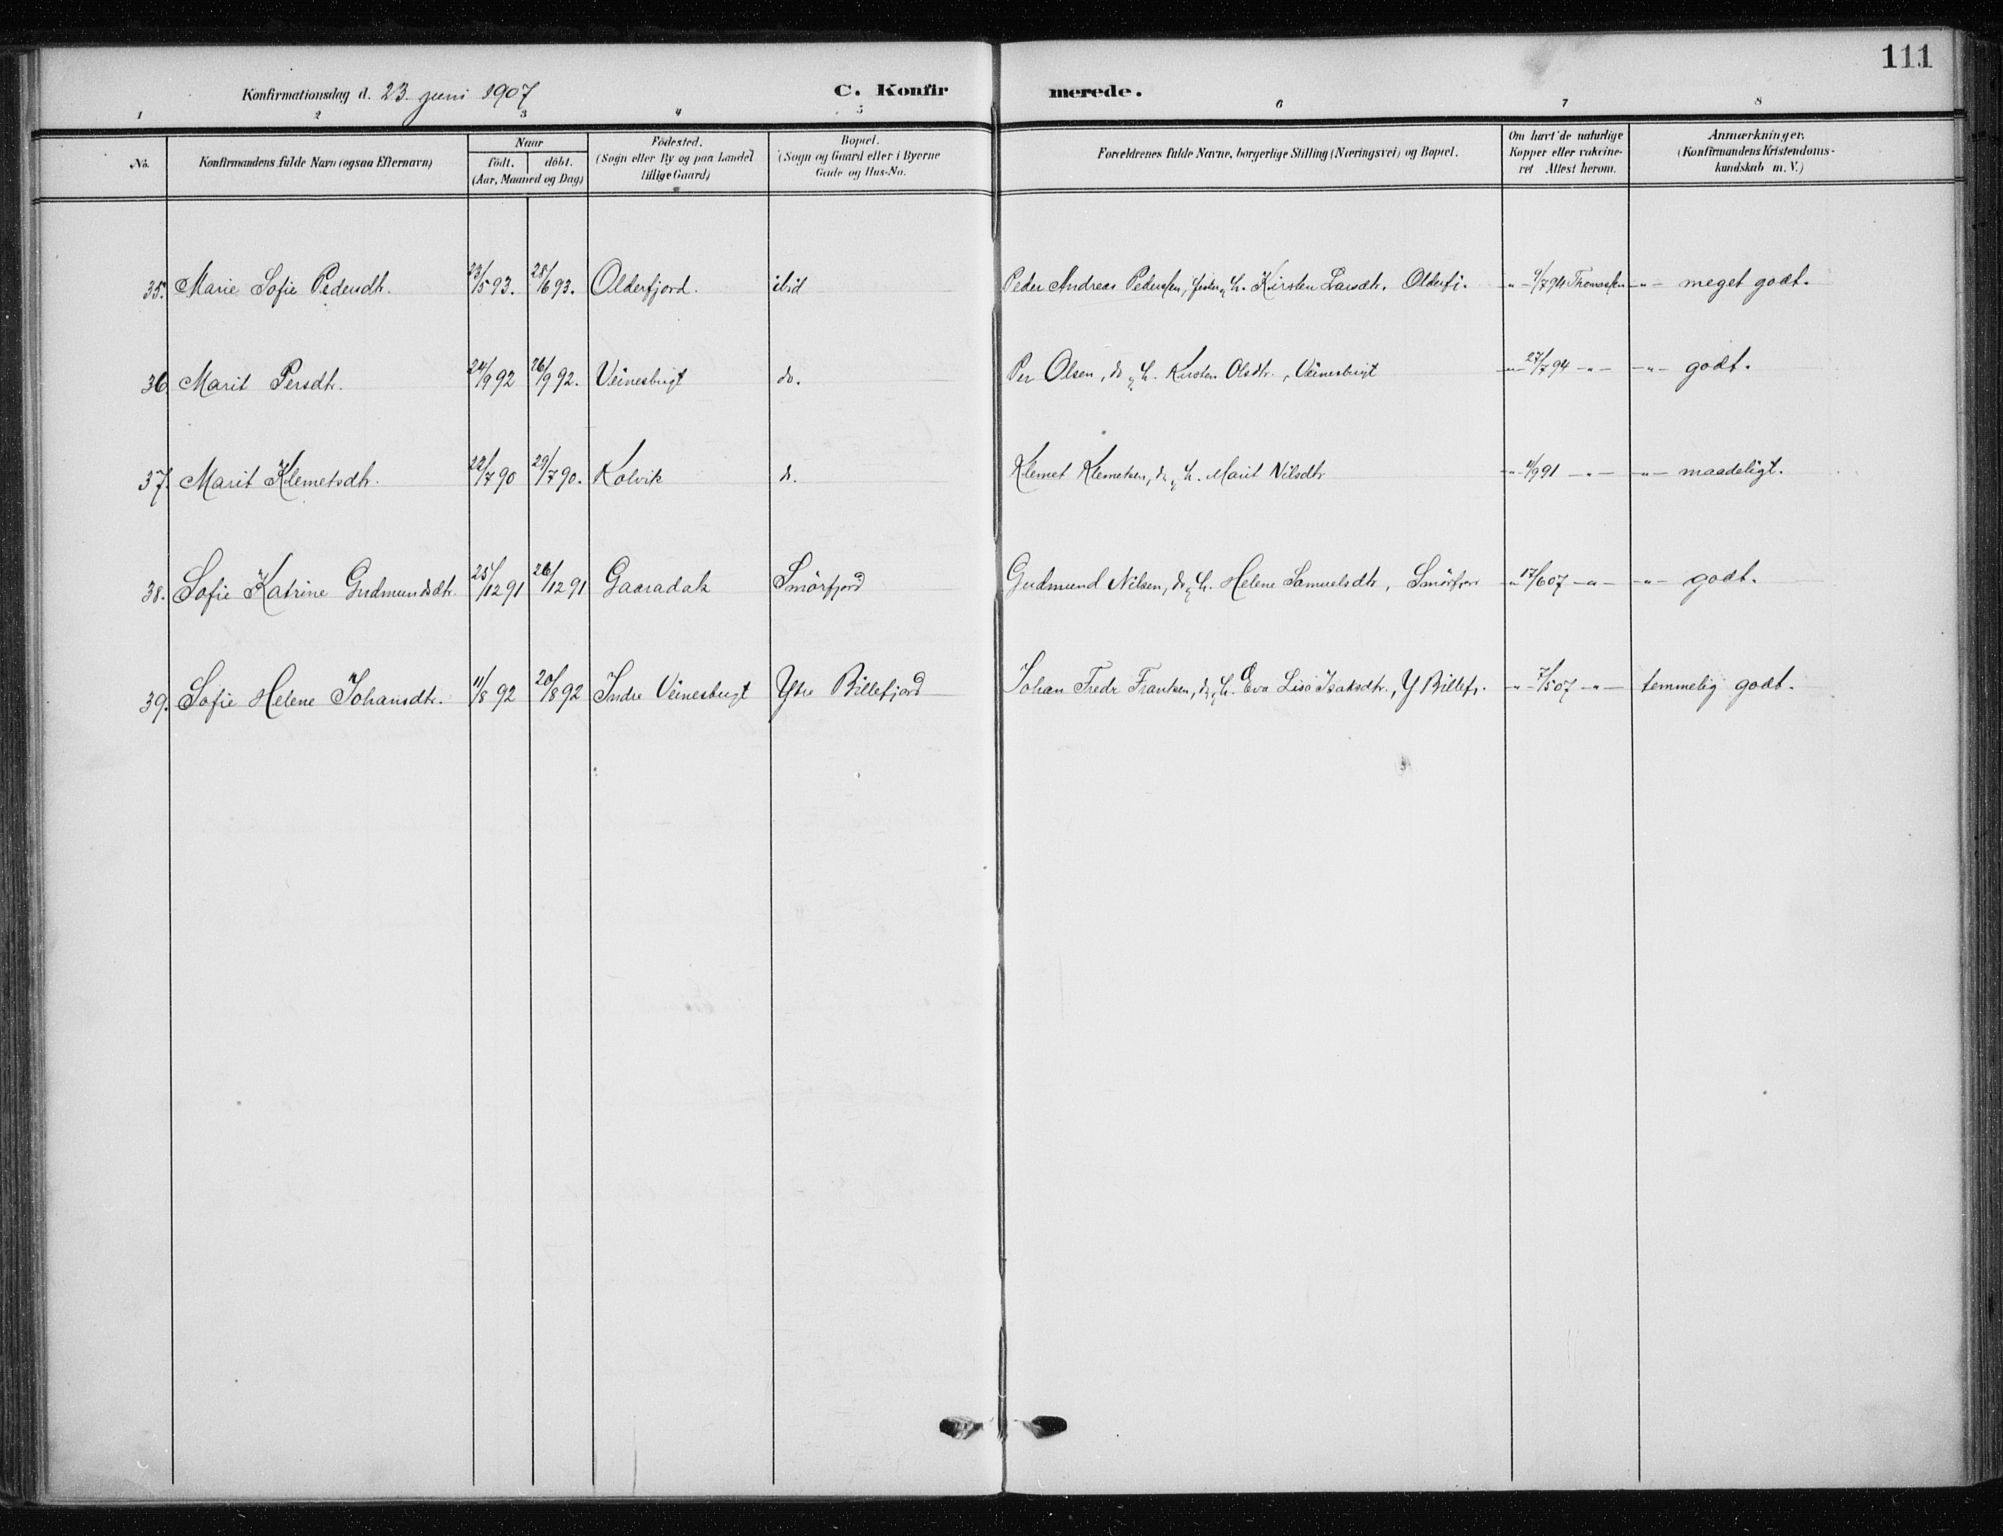 111
Konfirmationsdag d. 23 juni 1907 C. Konfirmerede.
1 2 3 4 5 6 7 8
No. Konfirmandens fulde Navn (ogsaa Efternavn) Naar födt. döbt. (Aar, Maaned og Dag) Födested. (Sogn eller By og paa Landet tillige Gaard) Bopæl. (Sogn og Gaard eller i Byerne Gade og Hus-No. Forældrenes fulde Navne, borgerlige Stilling (Næringsvei) og Bopæl. Om havt de naturlige Kopper eller vakcineret Attest herom. Anmærkninger. (Konfirmandens Kristendomskundskab m. V.)
35. Marie Sofie Pedersdt. 23/5 93. 28/6 93. Olderfjord. ibid Peder Andreas Pedersen, H. Kirsten Larsdtr. Olderfj. -"- 9/7 94 Thomassen -"- meget godt.
36. Marit Persdtr. 24/9 92 26/9 92. Veinesbugt do. Per Olsen, do, H. Kirsten Olsdtr., Veinesbugt -"- 27/7 94 -"- -"- godt.
37. Marit Klemetsdtr. 22/7 90 29/7 90. Kolvik do. Klemet Klemetsen, do, H. Marit Nilsdtr -"- 1/9 91 -"- -"- maadeligt.
38. Sofie Katrine Gudmundsdtr. 25/12 91 26/12 91 Gaaradak Smörfjord Gudmund Nilsen, do, H. Helene Samuelsdtr, Smörfjor -"- 17/6 07 -"- -"- godt.
39. Sofie Helene Johansdtr. 11/8 92 20/8 92 Indre Veinesbugt Ytre Billefjord Johan Fredr Frantsen, do, H. Eva Lisa Isaksdtr., Y Billefj. -"- 7/5 07 -"- temmelig godt.